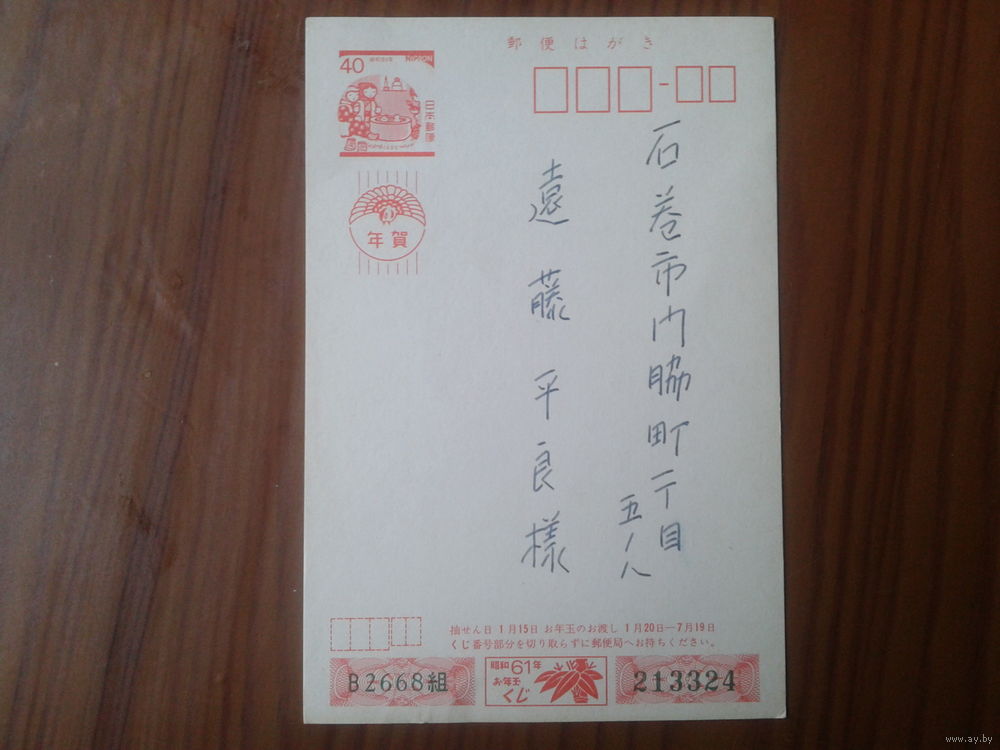 郵便はがき
40
NIPPON
日本郵便
年賀
石巻市内脇町一丁目
五ノ八
遠藤平良様
抽せん日 1月15日 お年玉のお渡し 1月20日—7月19日
くじ番号部分を切り取らずに郵便局へお持ちください。
B2668組
昭和61年
お年玉
くじ
213324
www.ay.by